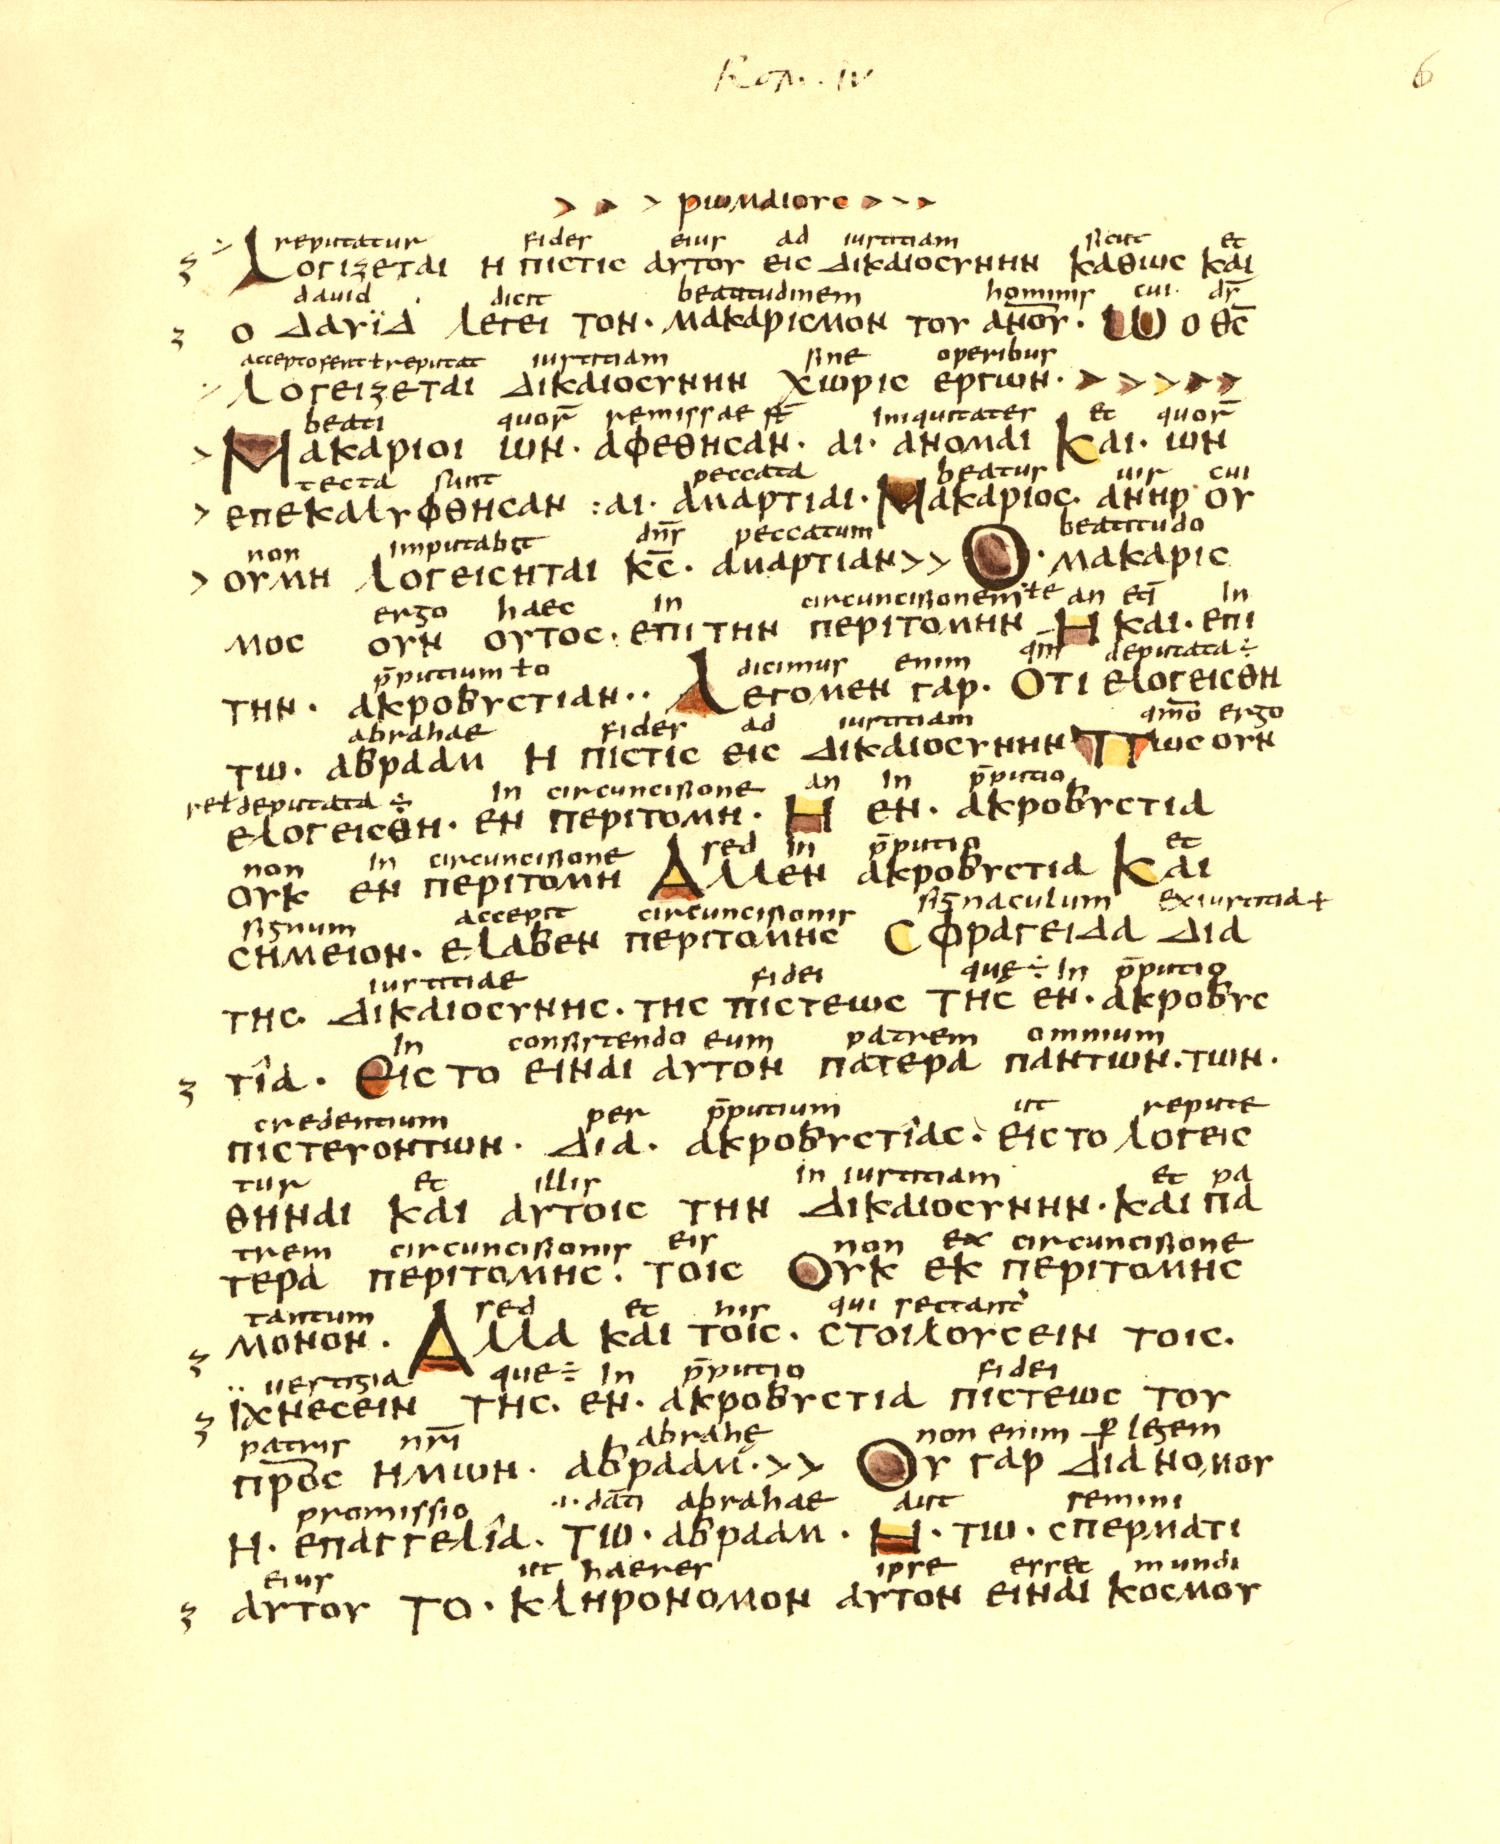 Rom. IV
6
> > > ρωμαιους > > >
reputatur fides eius ad iustitiam sicut et
Λογιζεται η πιστις αυτου εις δικαιοσυνην καθως και
david dicit beatitudinem hominis cui d̅s̅
ο Δαυϊδ λεγει τον· μακαρισμον του α̅ν̅ο̅υ̅· ω ο θ̅ς̅
acceptofert ł reputat iustitiam sine operibus
λογειζεται δικαιοσυνην χωρις εργων· > > > > >
beati quor̅ remissae s̅t̅ iniquitates et quor̅
Μακαριοι ων· αφεθησαν· αι· ανομαι Και· ων
tecta sunt peccata beatus uir cui
> επεκαλυφθησαν :αι· αμαρτιαι· Μακαριος· ανηρ ου
non imputabit dn̅s peccatum beatitudo
> ουμη λογεισηται κ̅ς̅· αμαρτιαν>> Ο· μακαρις
ergo haec in circuncisionem ł e an et̅ in
μος ουν ουτος· επι την περιτομην Η και· επι
p̅putium ł o dicimus enim qm̅ deputata ÷
την· ακροβυστιαν·· Λεγομεν γαρ· Οτι ελογεισθη
abrahae fides ad iustitiam qmo̅ ergo
τω· αβρααμ Η πιστις εις δικαιοσυνην Πως ουν
deputata ÷ in circuncisione an in p̅putio
ελογεισθη· εν περιτομη· Η εν· ακροβυστια
non in circuncisione sed in p̅putio et
ουκ εν περιτομη Αλλεν ακροβυστια Και
signum accepit circuncisionis signaculum exiustitia ł
σημειον· ελαβεν περιτομης Сφραγειδα δια
iustitiae fidei quę ÷ in p̅putio
της· δικαιοσυνης· της πιστεως της εν· ακροβυς
in consistendo eum patrem omnium
τια· Εις το ειναι αυτον πατερα παντων·των·
credentium per p̅putium ut repute
πιστευοντων· δια· ακροβυστιας· εις το λογεις
tur et illis in iustitiam et pa
θηναι και αυτοις την δικαιοσυνην· και πα
trem circuncisionis eis non ex circuncisione
τερα περιτομης· τοις Ουκ εκ περιτομης
tantum sed et his qui sectant̅
μονον· Αλλα και τοις· στοιλουσειν τοις·
uestigia que ÷ in p̅putio fidei
ιχνεσειν της· εν· ακροβυστια πιστεως του
patris nr̅i abrahę non enim p̲ legem
π̅ρ̅ο̅ς ημων· αβρααμ·>> Ου γαρ δια νομου
promissio dat̅i abrahae aut semini
η· επαγγελια· τω· αβρααμ· Η· τω· σπερματι
eius ut haeres ipse esset mundi
αυτου το· κληρονομον αυτον ειναι κοσμου